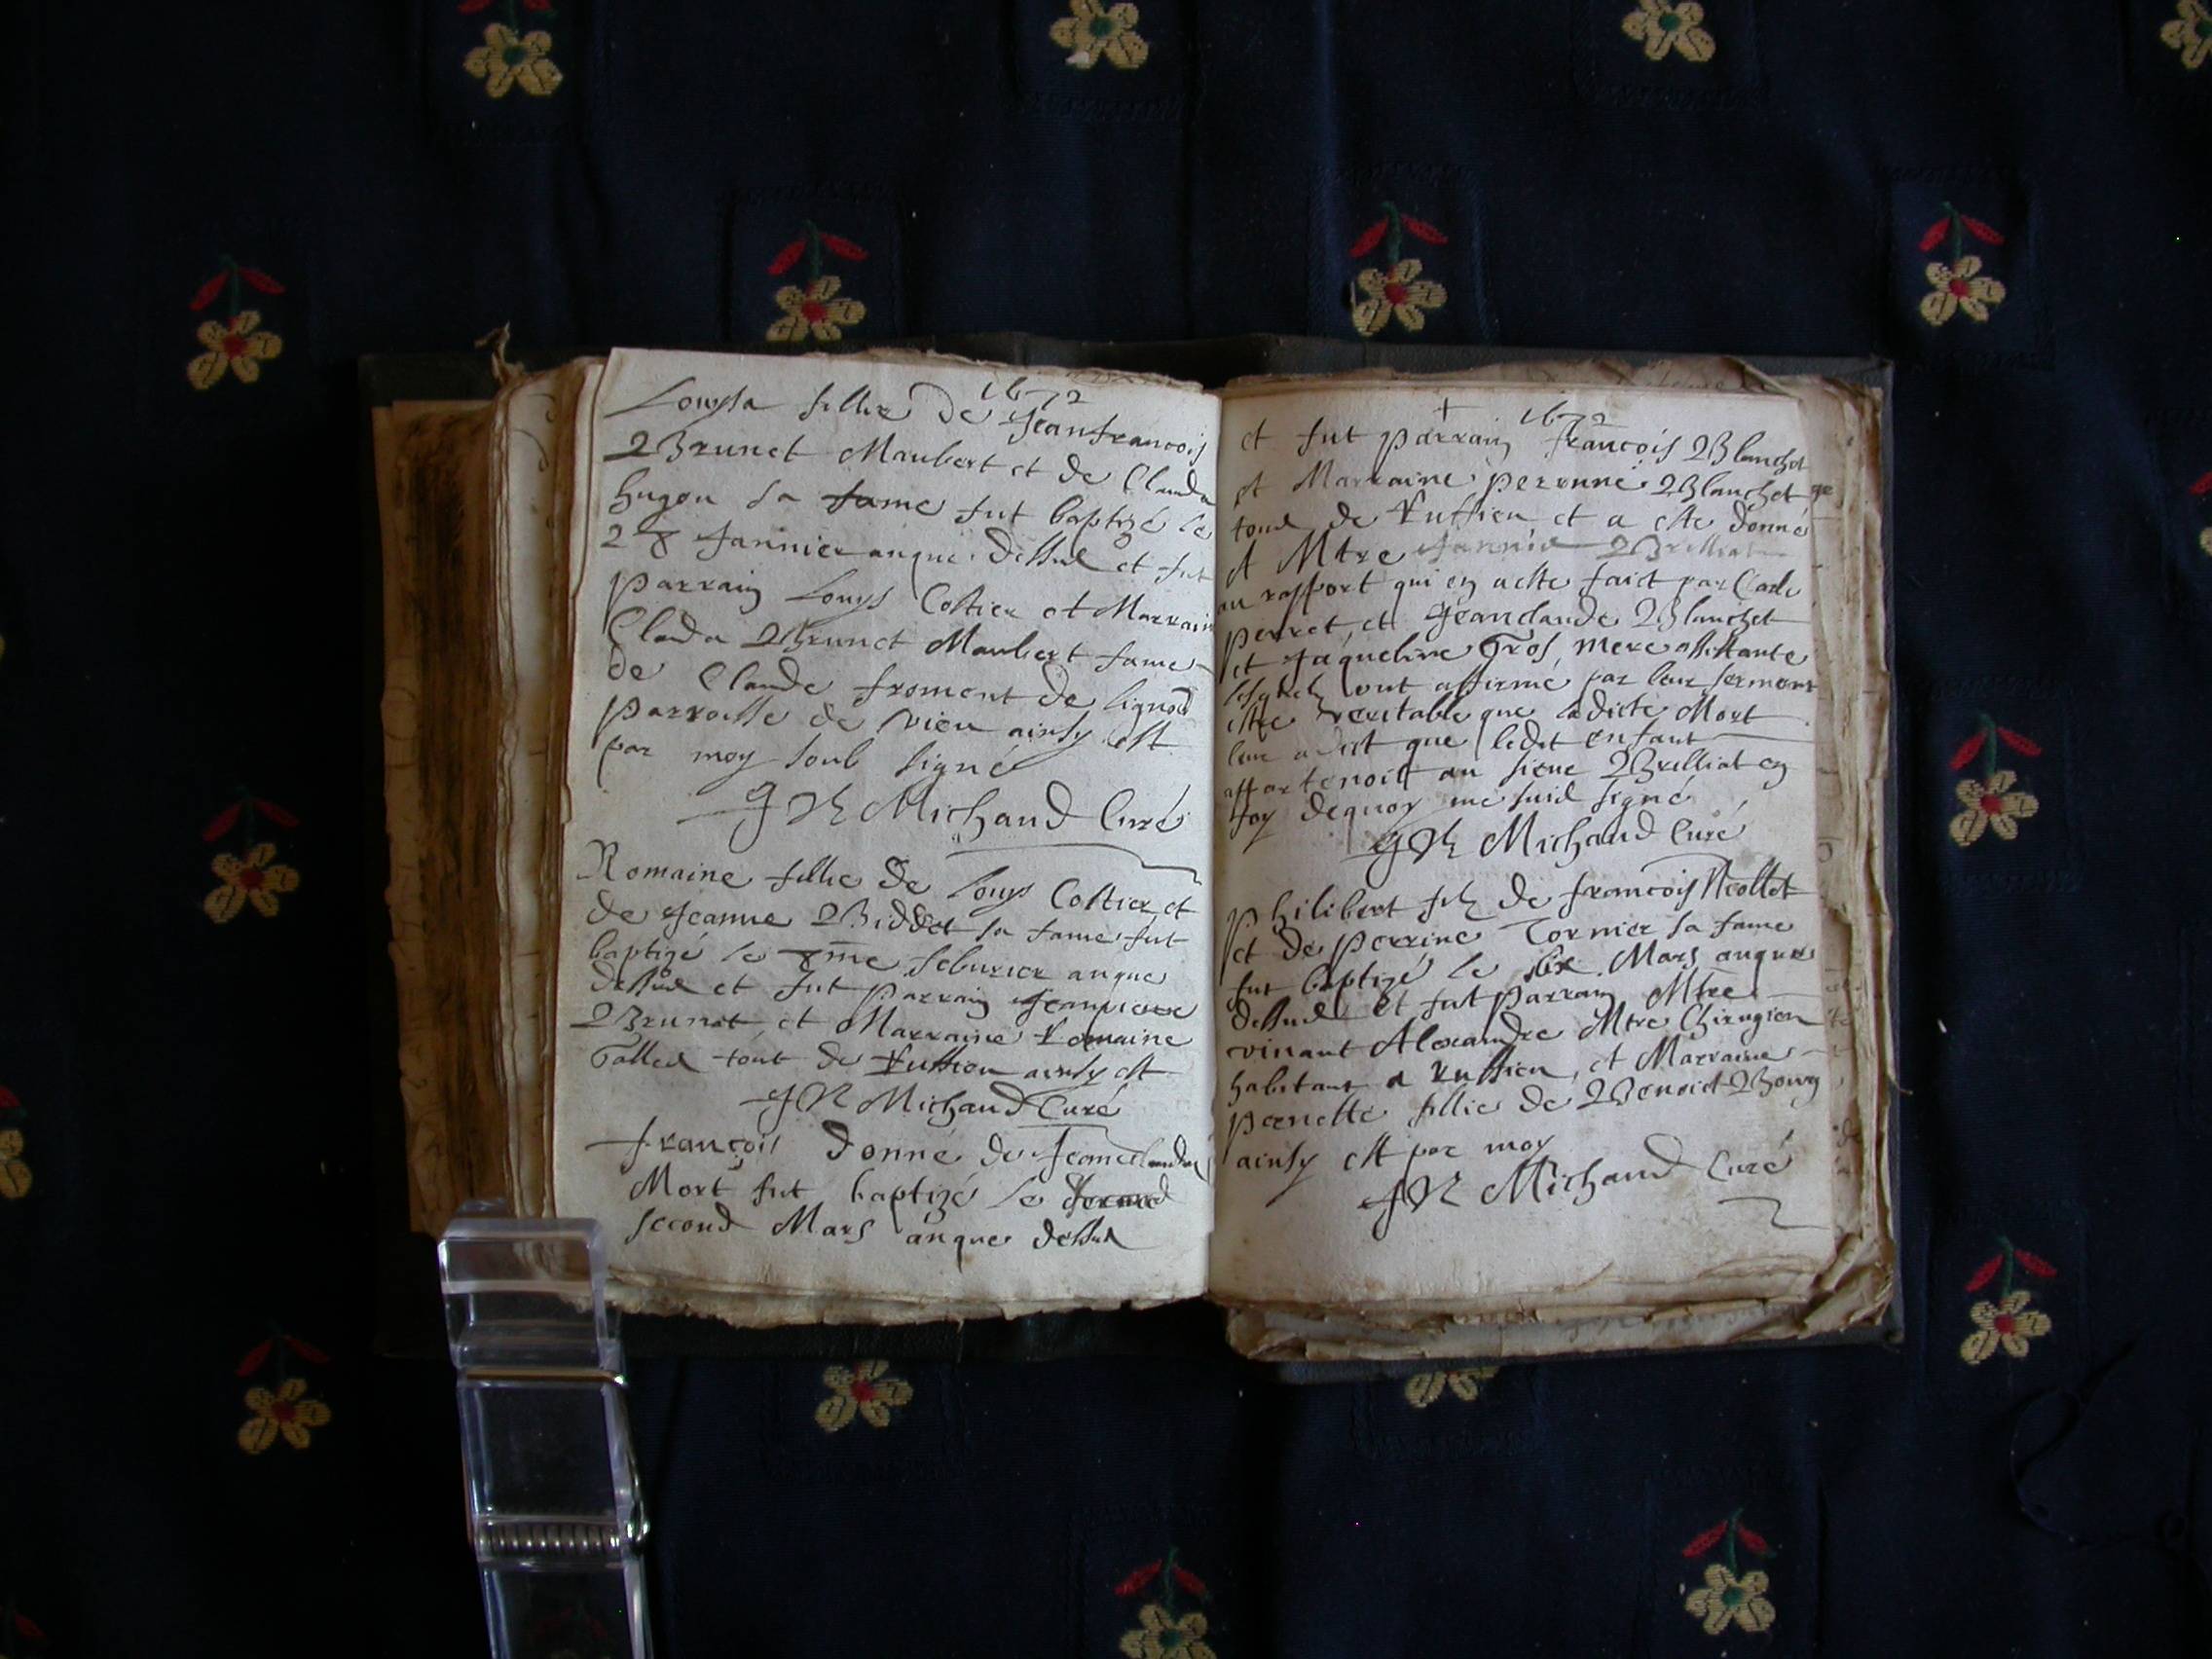 1672
Louysa fillie de Jeanfrancois
Brunet Maubert et de Clauda
hugon sa fame fut baptizé le
28 Jannier anque dessus et fut
parrain Louys Costier et Marrain
Clauda Brunet Maubert fame
de Claude froment de lignod
parroisse de vieu ainsy est
par moy soub signé
Michaud Curé
Romaine fillie de Louys Costier et
de Jeanne Biddet sa fame fut
baptizé le 8me feburier anque
dessus et fut parrain Jeanpierre
Brunet et Marraine Romaine
Tallen tout de Ruffieu ainsy est
Michaud Curé
françois donné de Jeanneclauda
Mort fut baptizé le
second Mars anque dessus
1672
et fut parrain francois Blanchet
et Marraine peronne Blanchet
tous de Ruffieu et a este donné
A Mtre Brilliat
au raffort qui en a este faict par Claude
perret et Jeanclaude Blanchet
et Jaqueline Gros mere assistante
lesquels ont affirmé par leur serment
estre veritable que ladicte Mort
leur a dict que ledit enfant
affartenoit au sieur Brilliat en
foy dequoy me suis signé
Michaud Curé
philibert filz de francois Nicollet
et de perrine Tornier sa fame
fut baptizé le six Mars anque
dessus et fut parrain Mtre
vinant Alexandre Mtre Chirugien
habitant a Ruffieu et Marraine
pernette fillie de Benoict Bourg
ainsy est par moy
Michaud Curé